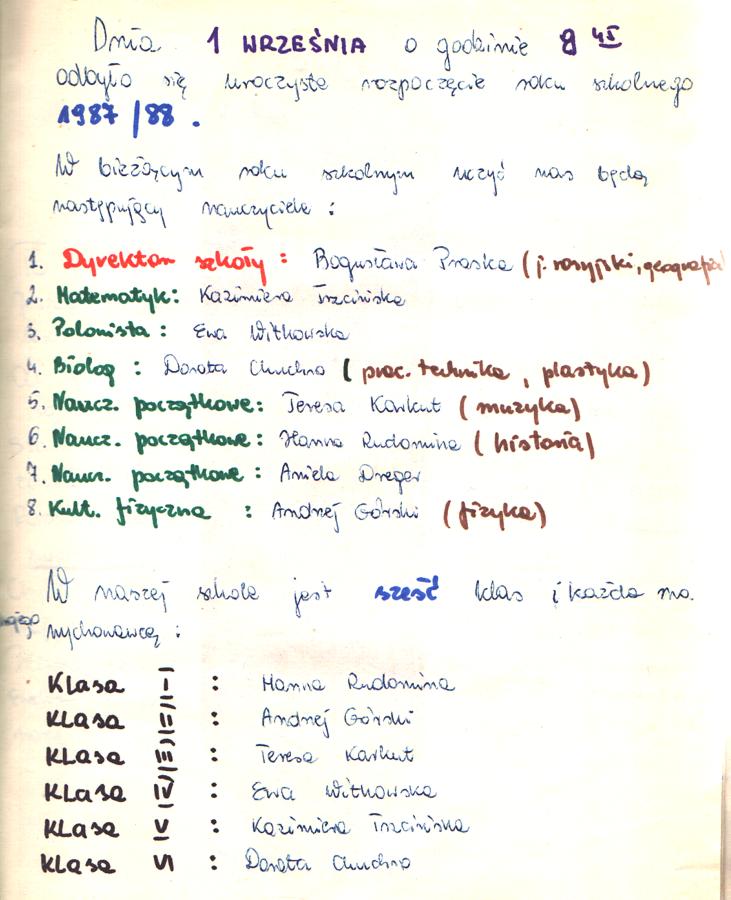 Dnia 1 WRZEŚNIA o godzinie 8 45
odbyło się uroczyste rozpoczęcie roku szkolnego
1987/88.
W bieżącym roku szkolnym uczyć nas będą
następujący nauczyciele :
1. Dyrektor szkoły : Bogusława Praska (j. rosyjski, geografia
2. Matematyk: Kazimiera Trzcińska
3. Polonista : Ewa Witkowska
4. Biolog : Dorota Chuchro ( prac. technika , plastyka)
5. Naucz. początkowe: Teresa Karkut ( muzyka)
6. Naucz. początkowe : Hanna Rudomina ( historia)
7. Naucz. początkowe : Aniela Dreger
8. Kult. fizyczna : Andrzej Górski (fizyka)
W naszej szkole jest sześć klas i każda ma
wychowawcę :
Klasa I : Hanna Rudomina
Klasa II : Andrzej Górski
Klasa III : Teresa Karkut
Klasa IV : Ewa Witkowska
Klasa V : Kazimiera Trzcińska
Klasa VI : Dorota Chuchro